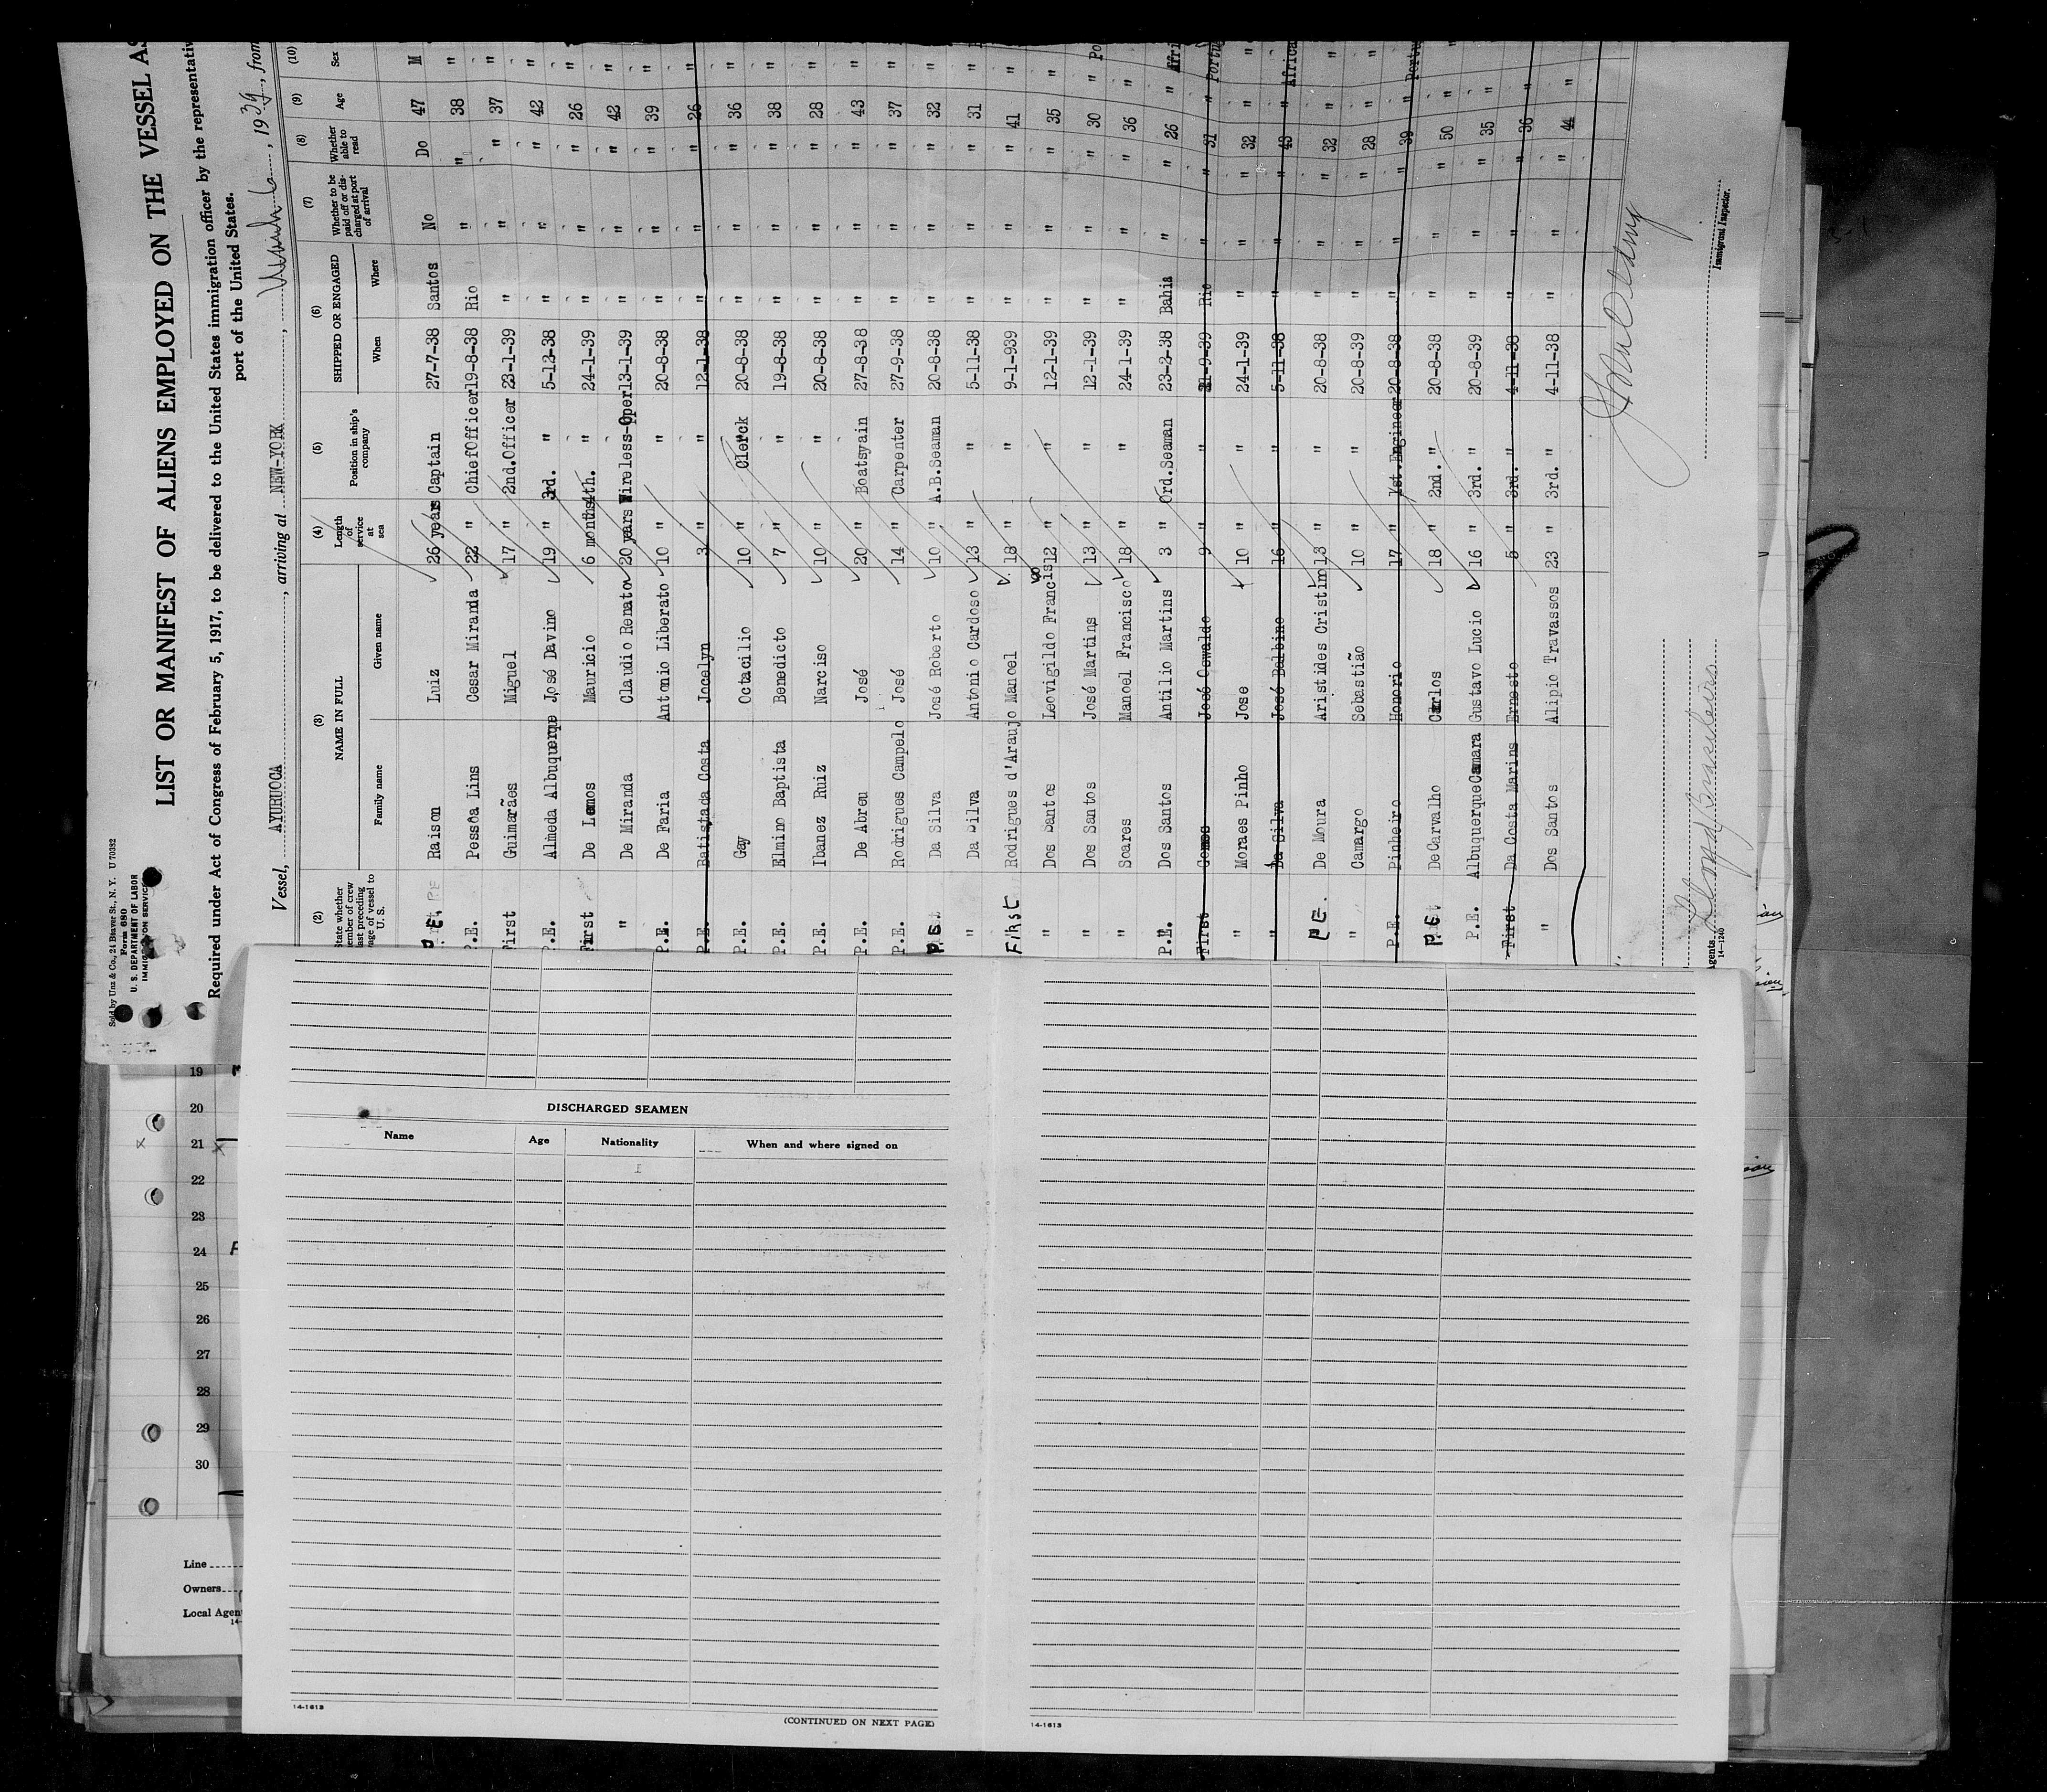 Sold by Unz & Co., 24 Beaver St., N. Y. U 70332
Form 680
U. S. DEPARTMENT OF LABOR
IMMIGRATION SERVICE
LIST OR MANIFEST OF ALIENS EMPLOYED ON THE VESSEL AS
Required under Act of Congress of February 5, 1917, to be delivered to the United States immigration officer by the representativ
port of the United States.
Vessel, AYURUOCA, arriving at NEW-YORK, March 6, 1939, from
(2) (3) (4) (5) (6) (7) (8) (9) (10)
State whether member of crew last preceding voyage of vessel to U. S. NAME IN FULL Length of service at sea Position in ship's company SHIPPED OR ENGAGED Whether to be paid off or discharged at port of arrival Whether able to read Age Sex
Family name Given name When Where
P.E. Raison Luiz 26 years Captain 27-7-38 Santos No Do 47 M
P.E. Pessôa Lins Cesar Miranda 22 " ChiefOfficer 19-8-38 Rio " " 38 "
First Guimarães Miguel 17 " 2nd.Officer 23-1-39 " " " 37 "
P.E. Almeda Albuquerque José Davino 19 " 3rd. " 5-12-38 " " " 42 "
First De Lemos Mauricio 6 months 4th. " 24-1-39 " " " 26 "
" De Miranda Claudio Renato 20 years Wireless-Oper 13-1-39 " " " 42 "
P.E. De Faria Antonio Liberato 10 " " 20-8-38 " " " 39 "
P.E. Batista da Costa Jocelyn 3 " " 12-1-38 " " " 26 "
P.E. Gay Octacilio 10 " Clerck 20-8-38 " " " 36 "
P.E. Elmino Baptista Benedicto 7 " " 19-8-38 " " " 38 "
P.E. Ibanez Ruiz Narciso 10 " " 20-8-38 " " " 28 "
P.E. De Abreu José 20 " Boatswain 27-8-38 " " " 43 "
P.E. Rodrigues Campelo José 14 " Carpenter 27-9-38 " " " 37 "
P.E. Da Silva José Roberto 10 " A.B.Seaman 20-8-38 " " " 32 "
" Da Silva Antonio Cardoso 13 " " 5-11-38 " " " 31 "
First Rodrigues d'Araujo Manoel 18 " " 9-1-939 " " " 41 "
" Dos Santos Leovigildo Francis 12 " " 12-1-39 " " " 35 "
" Dos Santos José Martins 13 " " 12-1-39 " " " 30 " Po
" Soares Manoel Francisco 18 " " 24-1-39 " " " 36 "
P.E. Dos Santos Antilio Martins 3 " Ord.Seaman 23-2-38 Bahia " " 26 " Afri
First Gomes José Oswaldo 9 " " 21-9-39 Rio " " 31 " Portu
" Moraes Pinho Jose 10 " " 24-1-39 " " " 32 " "
" Da Silva José Balbino 16 " " 5-11-38 " " " 43 " Africa
P.E. De Moura Aristides Cristin 13 " " 20-8-38 " " " 32 " "
" Camargo Sebastião 10 " " 20-8-39 " " " 28 " "
P.E. Pinheiro Honorio 17 " 1st.Engineer 20-8-38 " " " 39 " Portu
P.E. DeCarvalho Carlos 18 " 2nd. " 20-8-38 " " " 50 " "
P.E. AlbuquerqueCamara Gustavo Lucio 16 " 3rd. " 20-8-39 " " " 35 "
First Da Costa Marins Ernesto 5 " 3rd. " 4-11-38 " " " 36 "
" Dos Santos Alipio Travassos 23 " 3rd. " 4-11-38 " " " 44 "
Agents
14-1240
Immigrant Inspector.
19
20
21
22
23
24
25
26
27
28
29
30
Line
Owners
Local Agen
14-
DISCHARGED SEAMEN
Name Age Nationality When and where signed on
14-1613
(CONTINUED ON NEXT PAGE)
14-1613